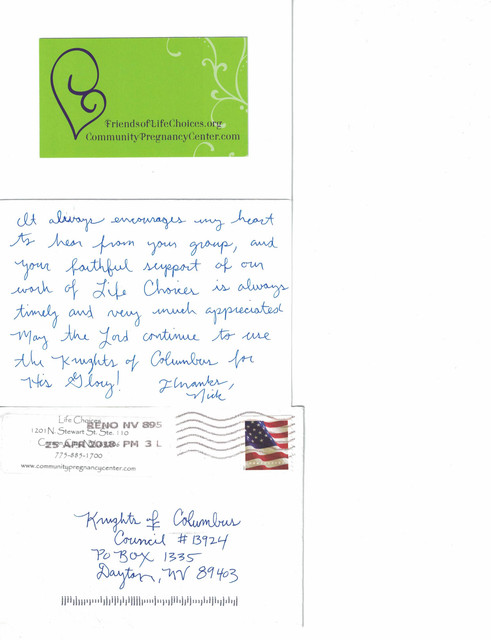 FriendsofLifeChoices.org
CommunityPregnancyCenter.com
It always encourages my heart
to hear from your group, and
your faithful support of our
work of Life Choices is always
timely and very much appreciated
May the Lord continue to use
the Knights of Columbus for
His Glory! Thanks,
Nick
Life Choices
RENO NV 895
1201 N. Stewart St. Ste. 110
25 APR 2018 PM 3 L
775-885-1700
www.communitypregnancycenter.com
Knights of Columbus
Council #13924
PO BOX 1335
Dayton, NV 89403